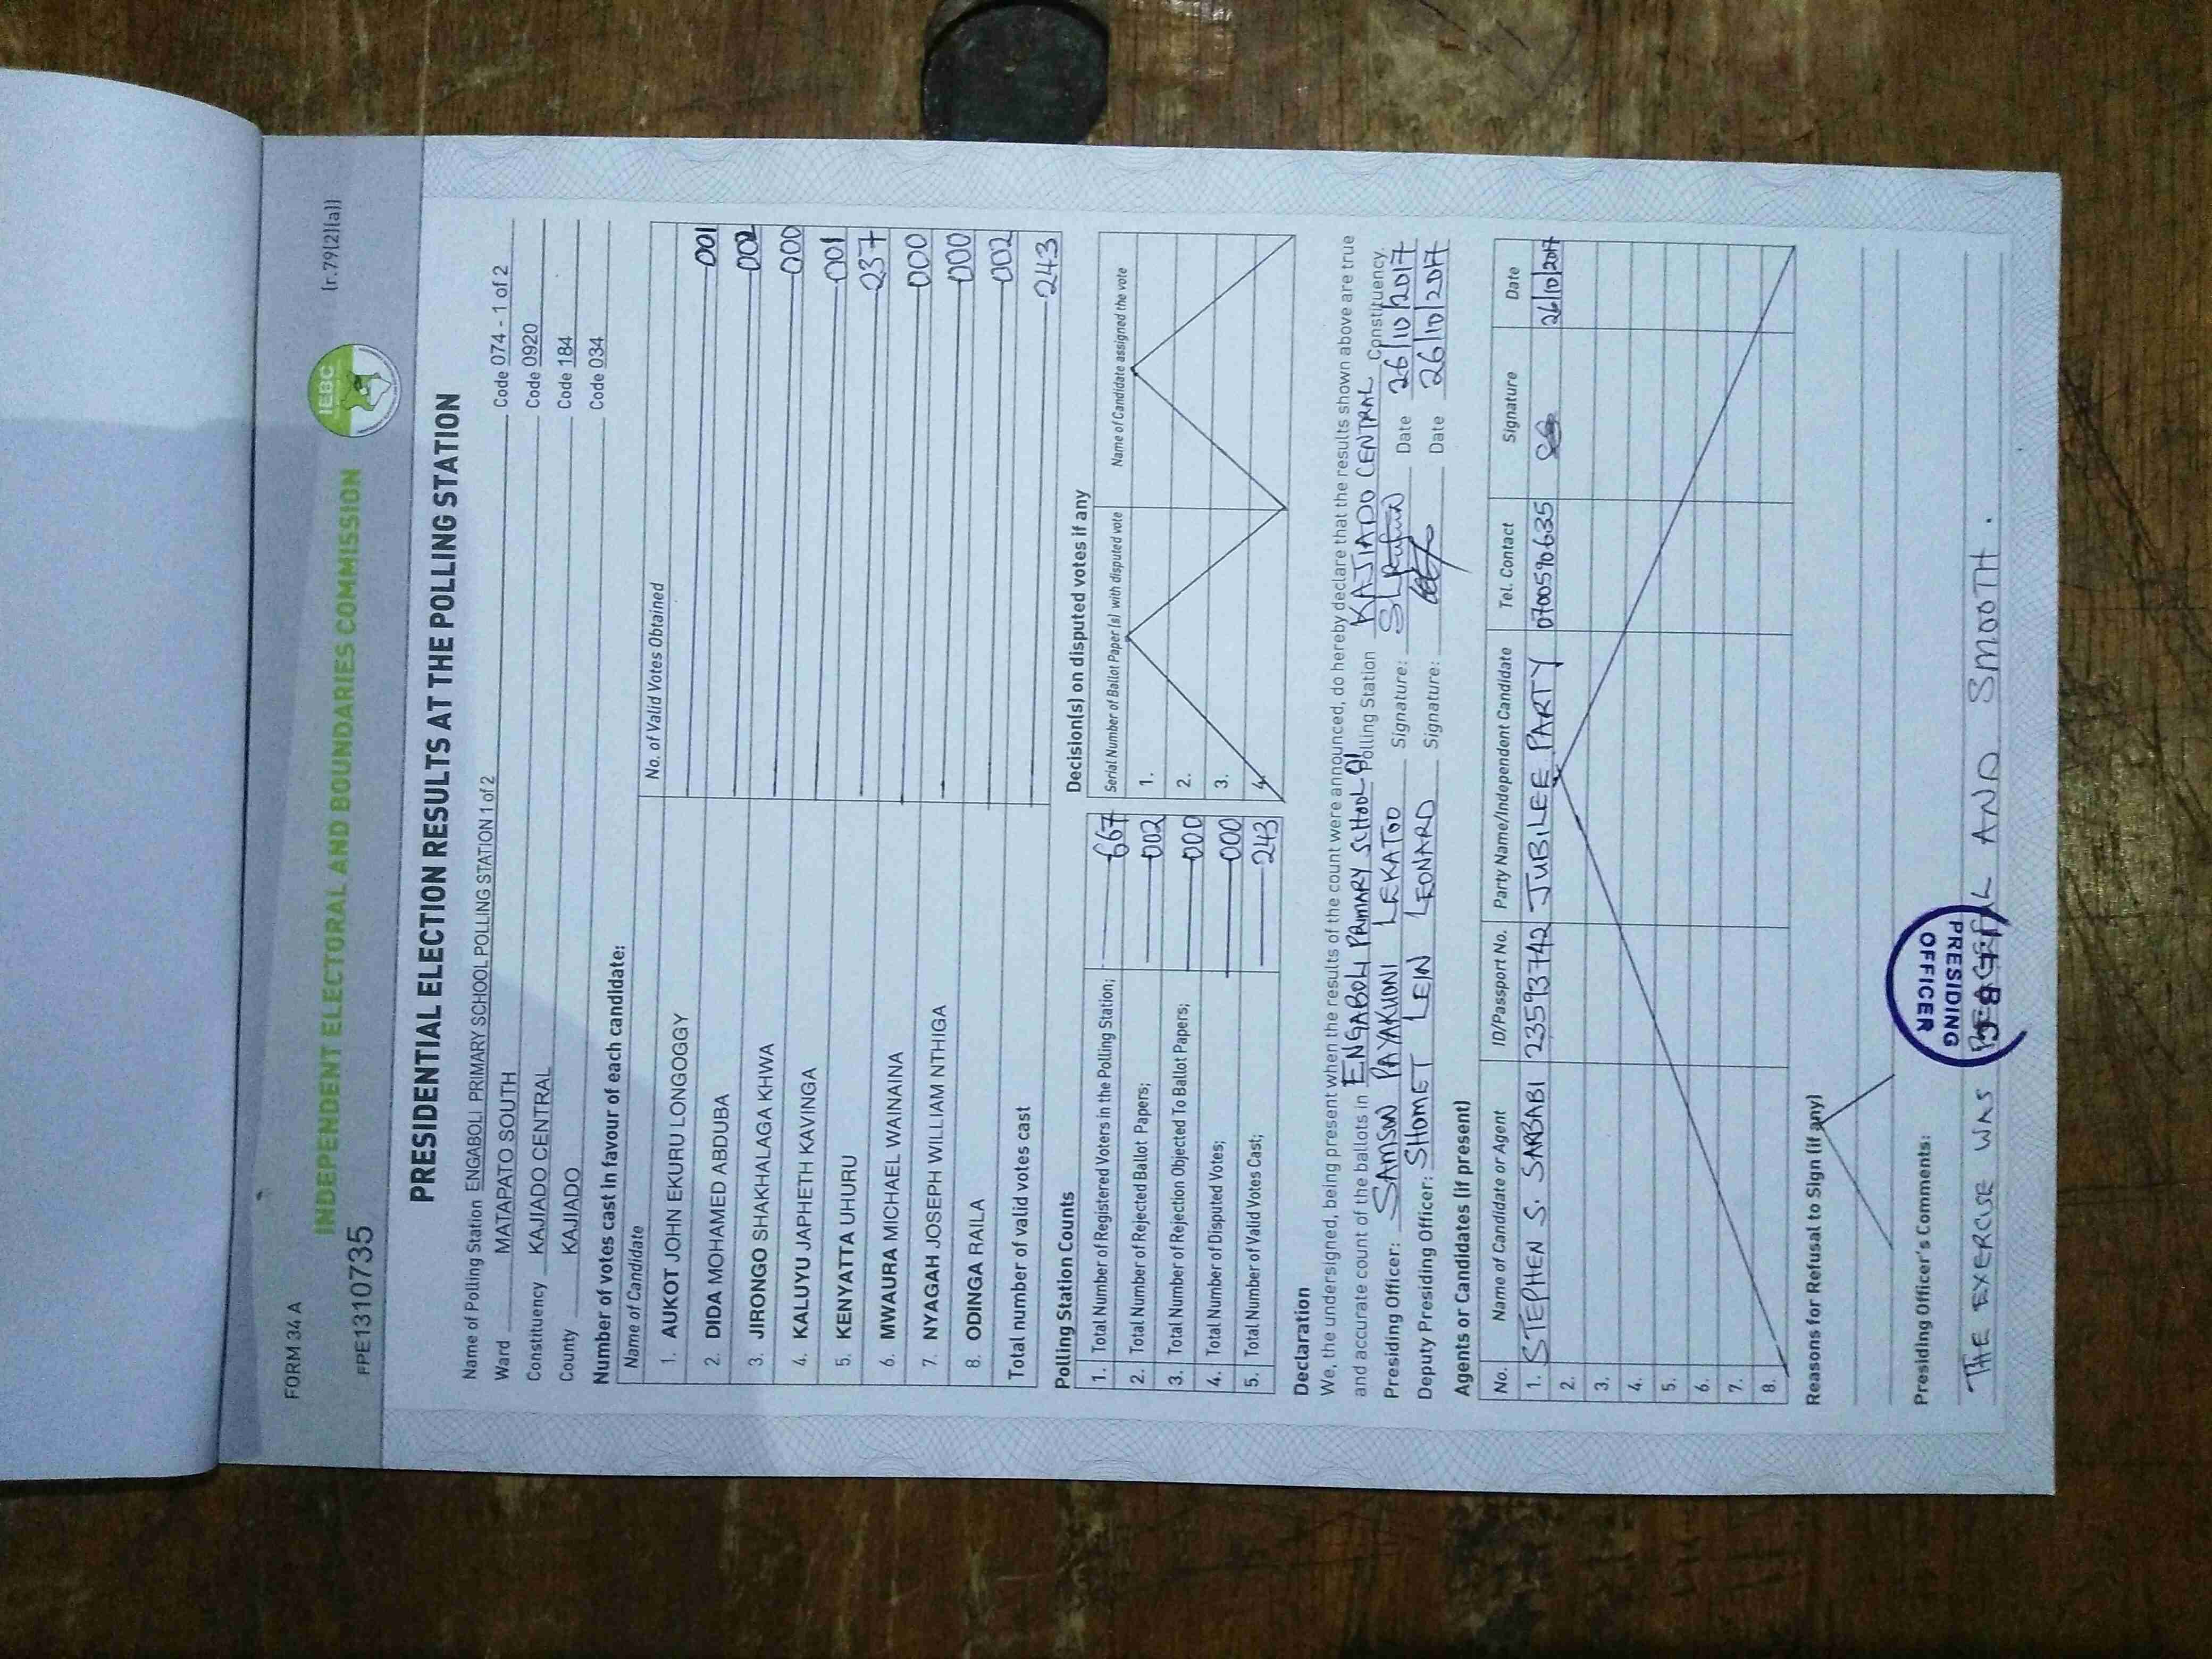 FORM 34 A
(r.79(2)(a))
INDEPENDENT ELECTORAL AND BOUNDARIES COMMISSION
IEBC
FPE1310735
PRESIDENTIAL ELECTION RESULTS AT THE POLLING STATION
Name of Polling Station ENGABOLI PRIMARY SCHOOL POLLING STATION 1 of 2 Code 074 - 1 of 2
Ward MATAPATO SOUTH Code 0920
Constituency KAJIADO CENTRAL Code 184
County KAJIADO Code 034
Number of votes cast in favour of each candidate:
Name of Candidate No. of Valid Votes Obtained
1. AUKOT JOHN EKURU LONGOGGY 001
2. DIDA MOHAMED ABDUBA 002
3. JIRONGO SHAKHALAGA KHWA 000
4. KALUYU JAPHETH KAVINGA 001
5. KENYATTA UHURU 237
6. MWAURA MICHAEL WAINAINA 000
7. NYAGAH JOSEPH WILLIAM NTHIGA 000
8. ODINGA RAILA 002
Total number of valid votes cast 243
Polling Station Counts
1. Total Number of Registered Voters in the Polling Station; 667
2. Total Number of Rejected Ballot Papers; 002
3. Total Number of Rejection Objected To Ballot Papers; 000
4. Total Number of Disputed Votes; 000
5. Total Number of Valid Votes Cast; 243
Decision(s) on disputed votes if any
Serial Number of Ballot Paper (s) with disputed vote Name of Candidate assigned the vote
1.
2.
3.
4.
Declaration
We, the undersigned, being present when the results of the count were announced, do hereby declare that the results shown above are true
and accurate count of the ballots in ENGABOLI PRIMARY SCHOOL 01 Polling Station KAJIADO CENTRAL Constituency.
Presiding Officer: SAMSON PAYAKUONI LEKATOO Signature: Date 26/10/2017
Deputy Presiding Officer: SHOMET LEIN LEONARD Signature: Date 26/10/2017
Agents or Candidates (if present)
No. Name of Candidate or Agent ID/Passport No. Party Name/Independent Candidate Tel. Contact Signature Date
1. STEPHEN S. SARBABI 23593742 JUBILEE PARTY 0700590635 26/10/2017
2.
3.
4.
5.
6.
7.
8.
Reasons for Refusal to Sign (if any)
Presiding Officer's Comments:
PRESIDING
OFFICER
THE EXERCISE WAS PEACEFUL AND SMOOTH.